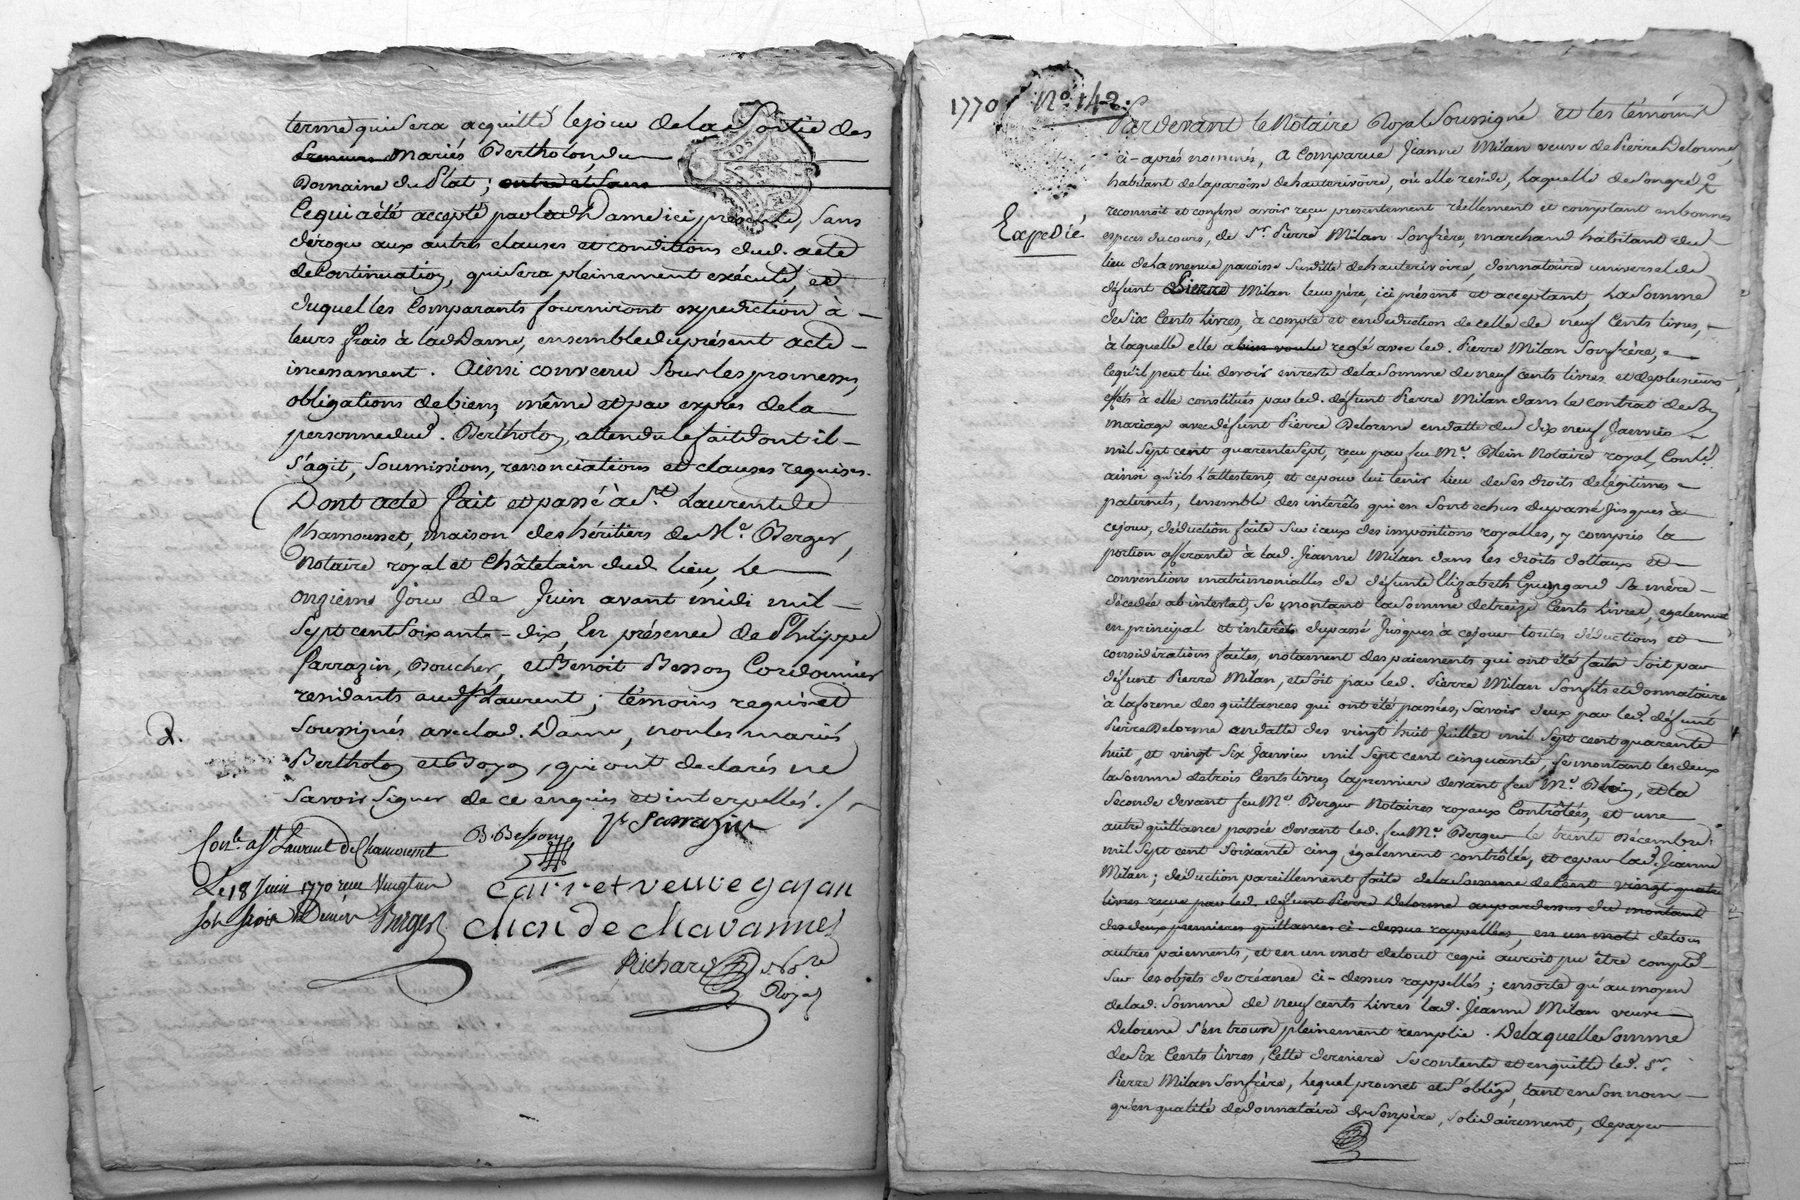 terme qui sera acquitté le jour de la Sortie des
premiers mariés Bertholon, du
Domaine du Plat; outre et Sous
Ce qui a été accepté par lad. Dame ici présente, Sans
déroger aux autres clauses et conditions dud. acte
de Continuation, qui sera pleinement exécuté, et
duquel les Comparants fourniront expedition à
leurs frais à lad. Dame, ensemble du présent acte
incessament. Ainsi convenu Sous les promesses,
obligations de biens, même et par exprès de la
personne dud. Bertholon, attendu le fait dont il
s'agit, Soumissions, renonciations et clauses requises.
Dont acte fait et passé à St. Laurent de
Chamousset, maison des héritiers de Me. Berger,
Notaire royal et Châtelain dud. lieu, Le
onzieme Jour de Juin avant midi mil
Sept cent Soixante-dix, En présence de Philippe
Sarrazin, Boucher, et Benoit Besson Cordonnier
residants aud. St. Laurent; témoins requis et
Soussignés avec lad. Dame, non les mariés
Bertholon et Boyon, qui ont déclarés ne
Savoir Signer de ce enquis et interpellés./.
B. Besson P Sarrazin
Conle. a St Laurent de Chamousset
Le 18 Juin 1770 reçu
Berger
veuve gajan
chion de chavannes
Richard Not.re
Royal
1770 No. 142.
Expedié
Pardevant le Notaire Royal Soussigné et les témoins
ci-après nommés, a Comparue Jeanne Milan veuve de Pierre Delorme,
habitant de la paroisse de hauterivoire, où elle reside, laquelle de Son gré
reconnoit et confesse avoir reçu presentement réellement et comptant en bonnes
especes du cours, de Sr. Pierre Milan Son frère, marchand habitant du
lieu de la meme paroisse Susditte de hauterivoire, donnataire universel de
défunt Pierre Milan leur père, ici présent et acceptant, La Somme
de Six Cents Livres, à compte et en déduction de celle de neuf Cents livres,
à laquelle elle a bien voulu reglé avec led. Pierre Milan Son frère,
ce qu'il peut lui devoir en reste de la Somme de neuf cents livres et de plusieurs
effets à elle constitués par led. défunt Pierre Milan dans le contrat de Son
mariage avec défunt Pierre Delorme en datte du dix neuf Janvier
mil Sept cent quarente Sept, reçu par feu Me. Notaire royal, Conlé.
ainsi qu'ils l'attestent, et ce pour lui tenir lieu de Ses droits de légitimes
paternels, ensemble des interêts qui en Sont echus du passé Jusques à
ce jour, déduction faite Sur iceux des impositions royalles, y compris la
portion afferante à lad. Jeanne Milan dans les droits dottaux et
conventions matrimonialles de défunte Elizabeth Sa mère
décedée ab intestat, Se montant la Somme de treize Cents Livres, egalement
en principal et interêts du passé Jusques à ce jour toutes déductions et
considérations faites, notament des paiements qui ont été faits Soit par
défunt Pierre Milan, et Soit par led. Pierre Milan Son fils et donnataire
à la forme des quittances qui ont été passées, Savoir deux par led. défunt
Pierre Delorme en datte des vingt huit Juillet mil Sept cent quarente
huit, et vingt Six Janvier mil Sept cent cinquante, Se montant les deux
la Somme de trois Cents livres, la premiere devant feu Me. et la
Seconde devant feu Me. Berger Notaires royaux Contrôlées, et une
autre quittance passée devant led. feu Me. Berger le trente Décembre
mil Sept cent Soixante cinq également contrôlée, et ce par lad. Jeanne
Milan; déduction pareillement faite de la Somme de Cent vingt quatre
livres reçue par led. défunt Pierre Delorme au pardessus du montant
des deux premieres quittances ci-dessus rappellées, en un mot de tous
autres paiements, et en un mot de tout ce qui auroit pu être compté
Sur les objets de créance ci-dessus rappellés; ensorte qu'au moyen
de lad. Somme de neuf cents Livres lad. Jeanne Milan veuve
Delorme S'en trouve pleinement remplie. De laquelle Somme
de Six Cents livres, Cette derniere Se contente et en quitte led. Sr.
Pierre Milan Son frère, Lequel promet et S'oblige, tant en Son nom
qu'en qualité de donnataire de Son père, Solidairement, de payer